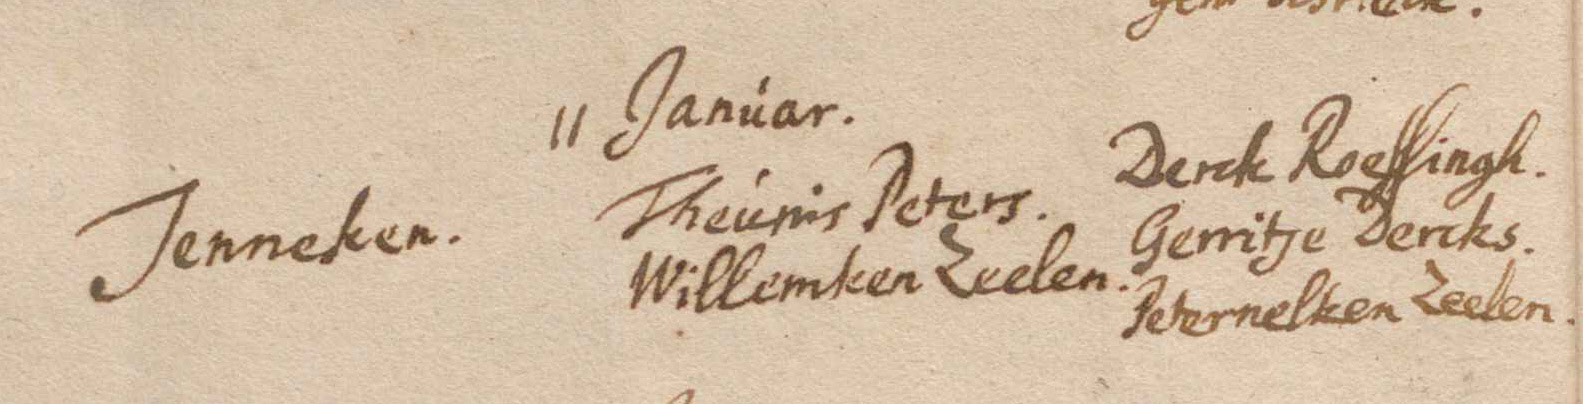 11 Januar.
Jenneken.
Theunis Peters.
Willemken Zeelen.
Derck Roessingh.
Gerritje Dercks.
Peternelken Zeelen.